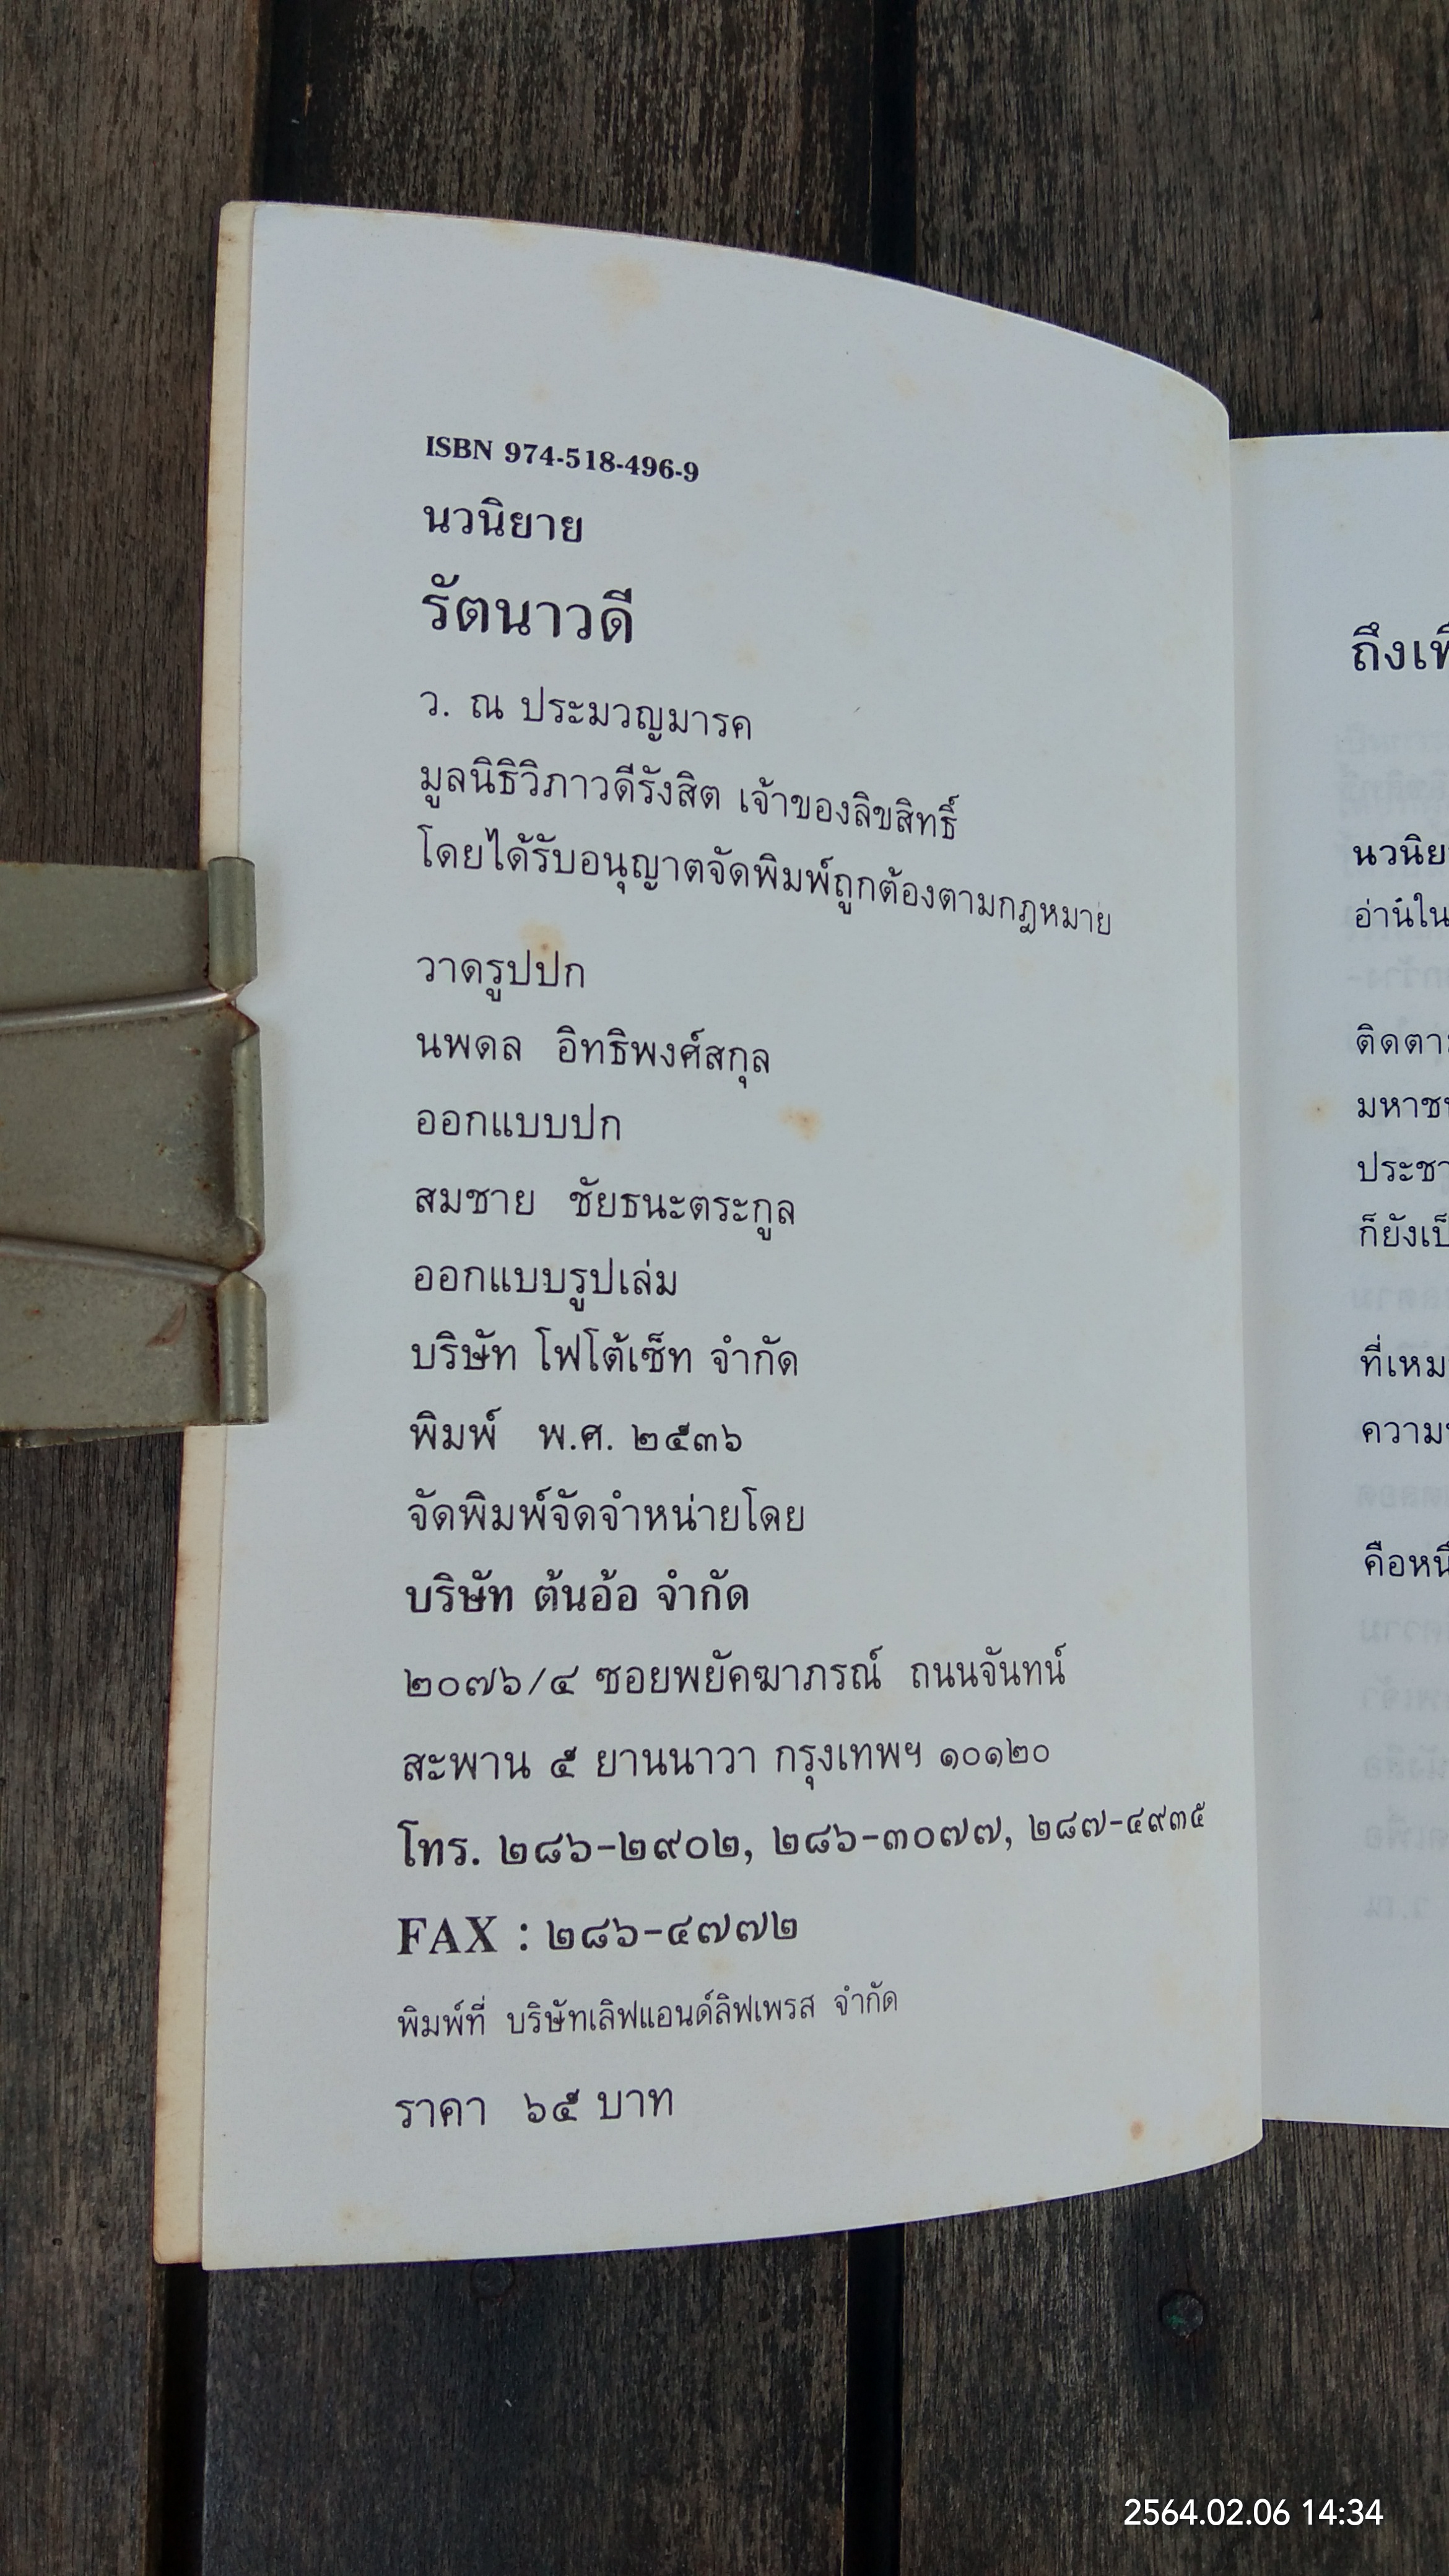 ISBN 974-518-496-9
นวนิยาย
รัตนาวดี
ว. ณ ประมวญมารค
มูลนิธิวิภาวดีรังสิต เจ้าของลิขสิทธิ์
โดยได้รับอนุญาตจัดพิมพ์ถูกต้องตามกฎหมาย
วาดรูปปก
นพดล อิทธิพงศ์สกุล
ออกแบบปก
สมชาย ชัยธนะตระกูล
ออกแบบรูปเล่ม
บริษัท โฟโต้เซ็ท จำกัด
พิมพ์ พ.ศ. ๒๕๓๖
จัดพิมพ์จัดจำหน่ายโดย
บริษัท ต้นอ้อ จำกัด
๒๐๗๖/๔ ซอยพยัคฆาภรณ์ ถนนจันทน์
สะพาน ๕ ยานนาวา กรุงเทพฯ ๑๐๑๒๐
โทร. ๒๘๖-๒๙๐๒, ๒๘๖-๓๐๗๗, ๒๘๗-๔๙๓๕
FAX : ๒๘๖-๔๗๗๒
พิมพ์ที่ บริษัทเลิฟแอนด์ลิฟเพรส จำกัด
ราคา ๖๕ บาท
นวนิย
อ่านใน
ติดตา
มหาช
ประชา
ก็ยังเป็
ที่เหม
ความ
คือหนึ
2564.02.06 14:34